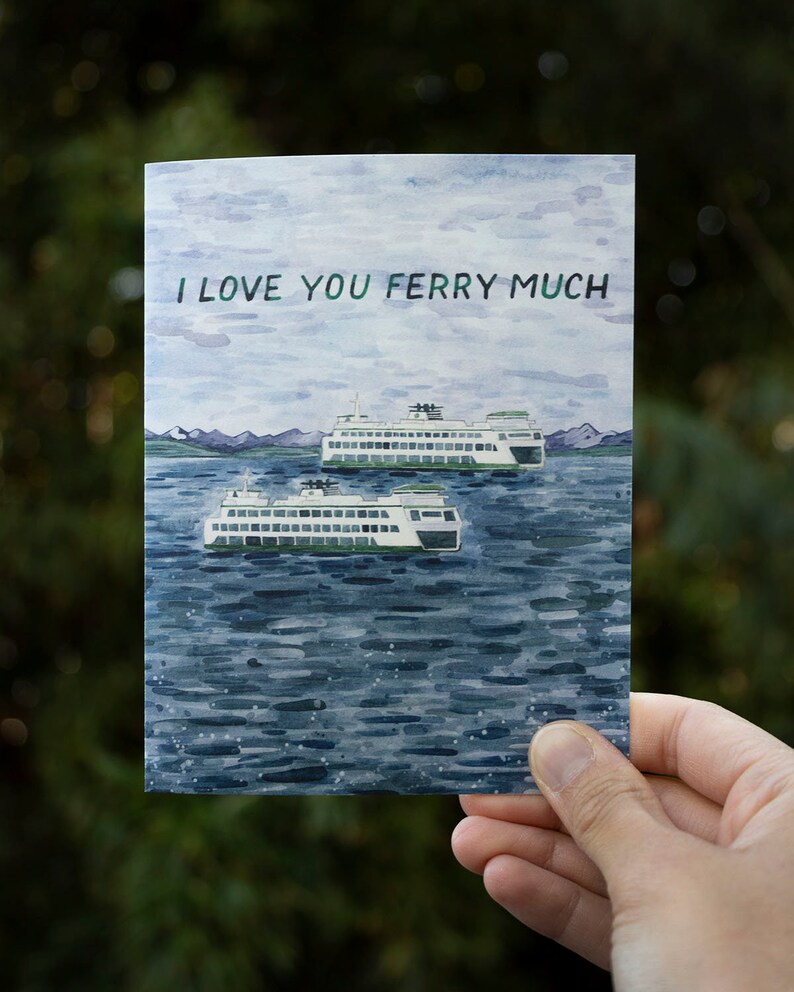 I LOVE YOU FERRY MUCH